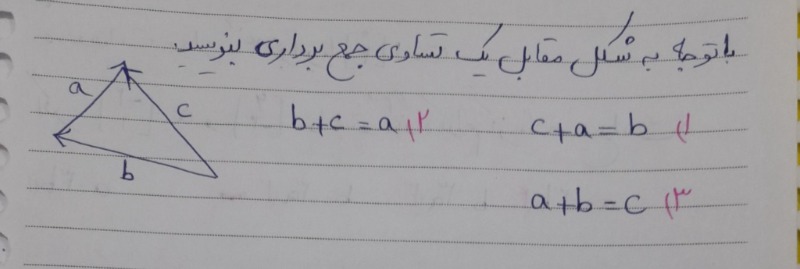 با توجه به شکل مقابل یک تساوی جمع برداری بنویسید.
۱) c+a=b ۲) b+c=a
۳) a+b=c
a
c
b